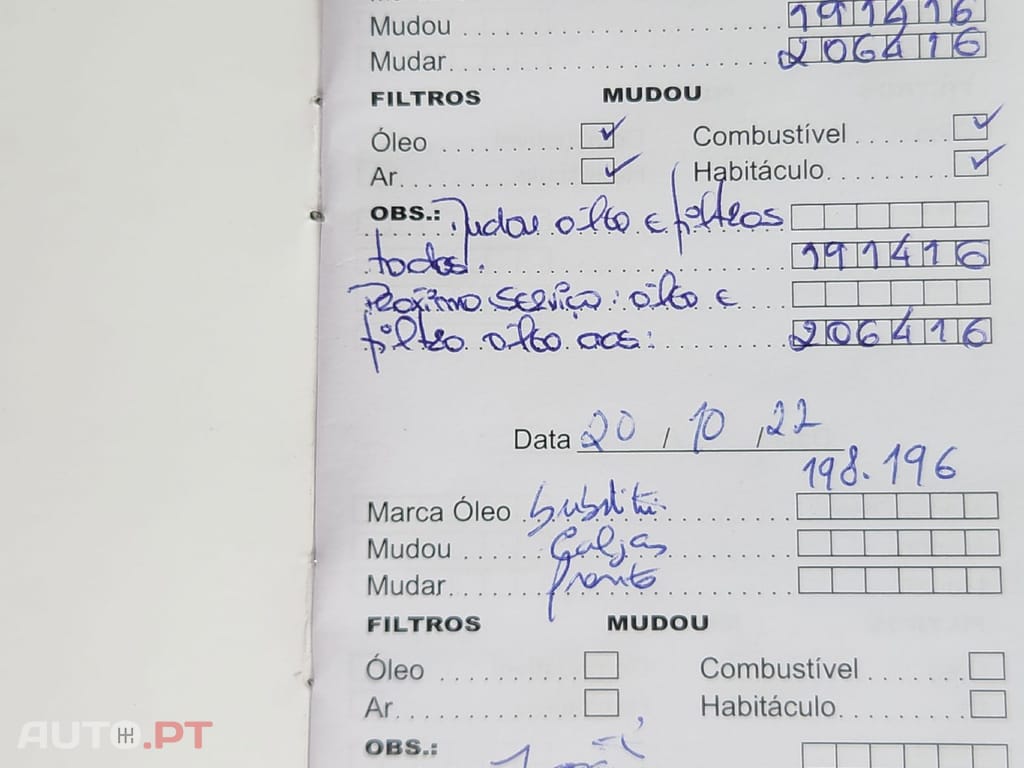 Mudou 191416
Mudar 206416
FILTROS MUDOU
Óleo Combustível
Ar Habitáculo
OBS.: Mudar óleo e filtros
todos. 191416
Próximo serviço: óleo e
filtro óleo aos: 206416
Data 20 / 10 / 22
198.196
Marca Óleo
Mudou
Mudar
FILTROS MUDOU
Óleo Combustível
Ar Habitáculo
OBS.:
AUTO.PT